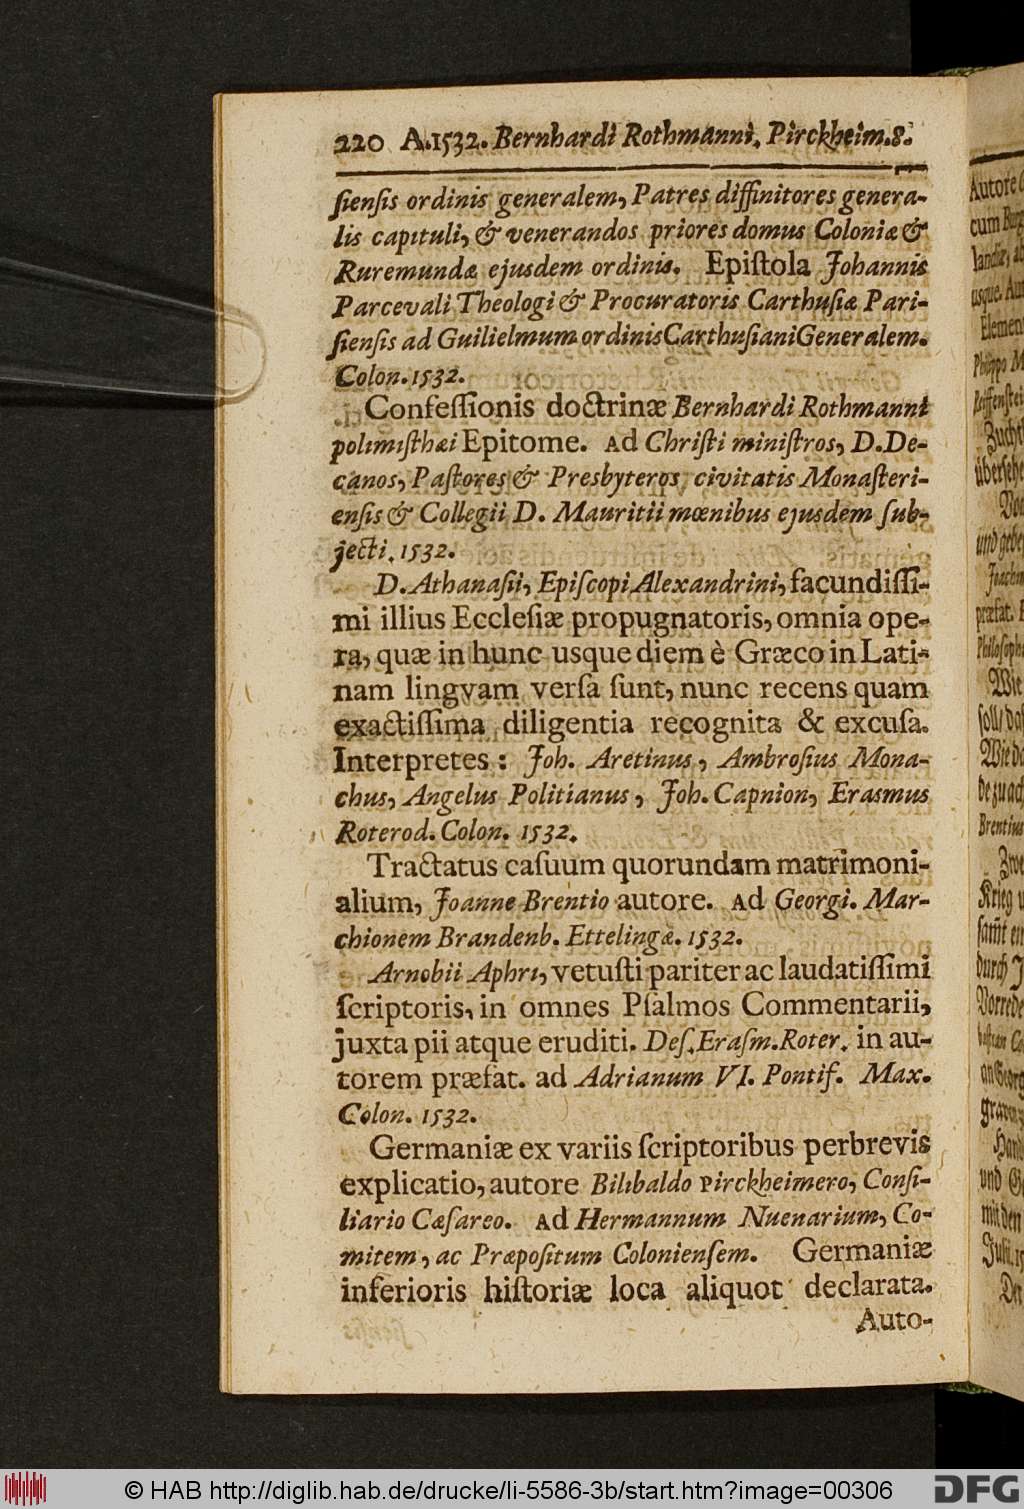 220 A. 1532. Bernhardi Rothmanni, Pirckheim. 8.
ſienſis ordinis generalem, Patres diffinitores genera-
lis capituli, & venerandos priores domus Coloniæ &
Ruremundæ ejusdem ordinis. Epiſtola Johannis
Parcevali Theologi & Procuratoris Carthuſiæ Pari-
ſienſis ad Guilielmum ordinis Carthuſiani Generalem.
Colon. 1532.
Confeſſionis doctrinæ Bernhardi Rothmanni
polimiſthæi Epitome. Ad Chriſti miniſtros, D. De-
canos, Paſtores & Presbyteros civitatis Monaſteri-
enſis & Collegii D. Mauritii mœnibus ejusdem ſub-
jecti. 1532.
D. Athanaſii, Epiſcopi Alexandrini, facundiſſi-
mi illius Eccleſiæ propugnatoris, omnia ope-
ra, quæ in hunc usque diem è Græco in Lati-
nam lingvam verſa ſunt, nunc recens quam
exactiſſima diligentia recognita & excuſa.
Interpretes: Joh. Aretinus, Ambroſius Mona-
chus, Angelus Politianus, Joh. Capnion, Erasmus
Roterod. Colon. 1532.
Tractatus caſuum quorundam matrimoni-
alium, Joanne Brentio autore. Ad Georgi. Mar-
chionem Brandenb. Ettelingæ. 1532.
Arnobii Aphri, vetuſti pariter ac laudatiſſimi
ſcriptoris, in omnes Pſalmos Commentarii,
juxta pii atque eruditi. Deſ. Eraſm. Roter. in au-
torem præfat. ad Adrianum VI. Pontif. Max.
Colon. 1532.
Germaniæ ex variis ſcriptoribus perbrevis
explicatio, autore Bilibaldo Pirckheimero, Conſi-
liario Cæſareo. Ad Hermannum Nuenarium, Co-
mitem, ac Præpoſitum Colonienſem. Germaniæ
inferioris hiſtoriæ loca aliquot declarata.
Auto-
© HAB http://diglib.hab.de/drucke/li-5586-3b/start.htm?image=00306
DFG